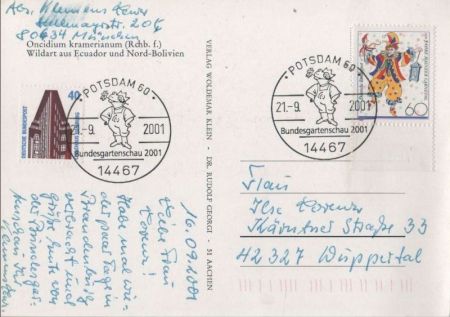 Abs. Klemens
80634 München
Oncidium kramerianum (Rchb. f.)
Wildart aus Ecuador und Nord-Bolivien
VERLAG WOLDEMAR KLEIN · DR. RUDOLF GEORGI · 51 AACHEN
40
DEUTSCHE BUNDESPOST
POTSDAM 60
21.-9. 2001
Bundesgartenschau 2001
14467
POTSDAM 60
21.-9. 2001
Bundesgartenschau 2001
14467
60
16.09.2001
Liebe Frau
Habe mal wie-
der paar Tage in
Brandenburg
verbracht und
grüße heute von
der Bundesgar-
tenschau
Frau
Ilse
Kärntner Straße 33
42327 Wuppertal